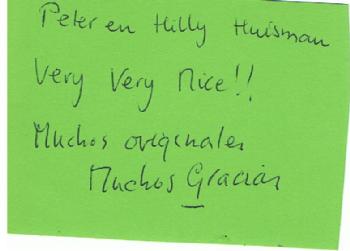 Peter en Hilly Huisman
Very Very Nice!!
Muchos originales
Muchos Gracias